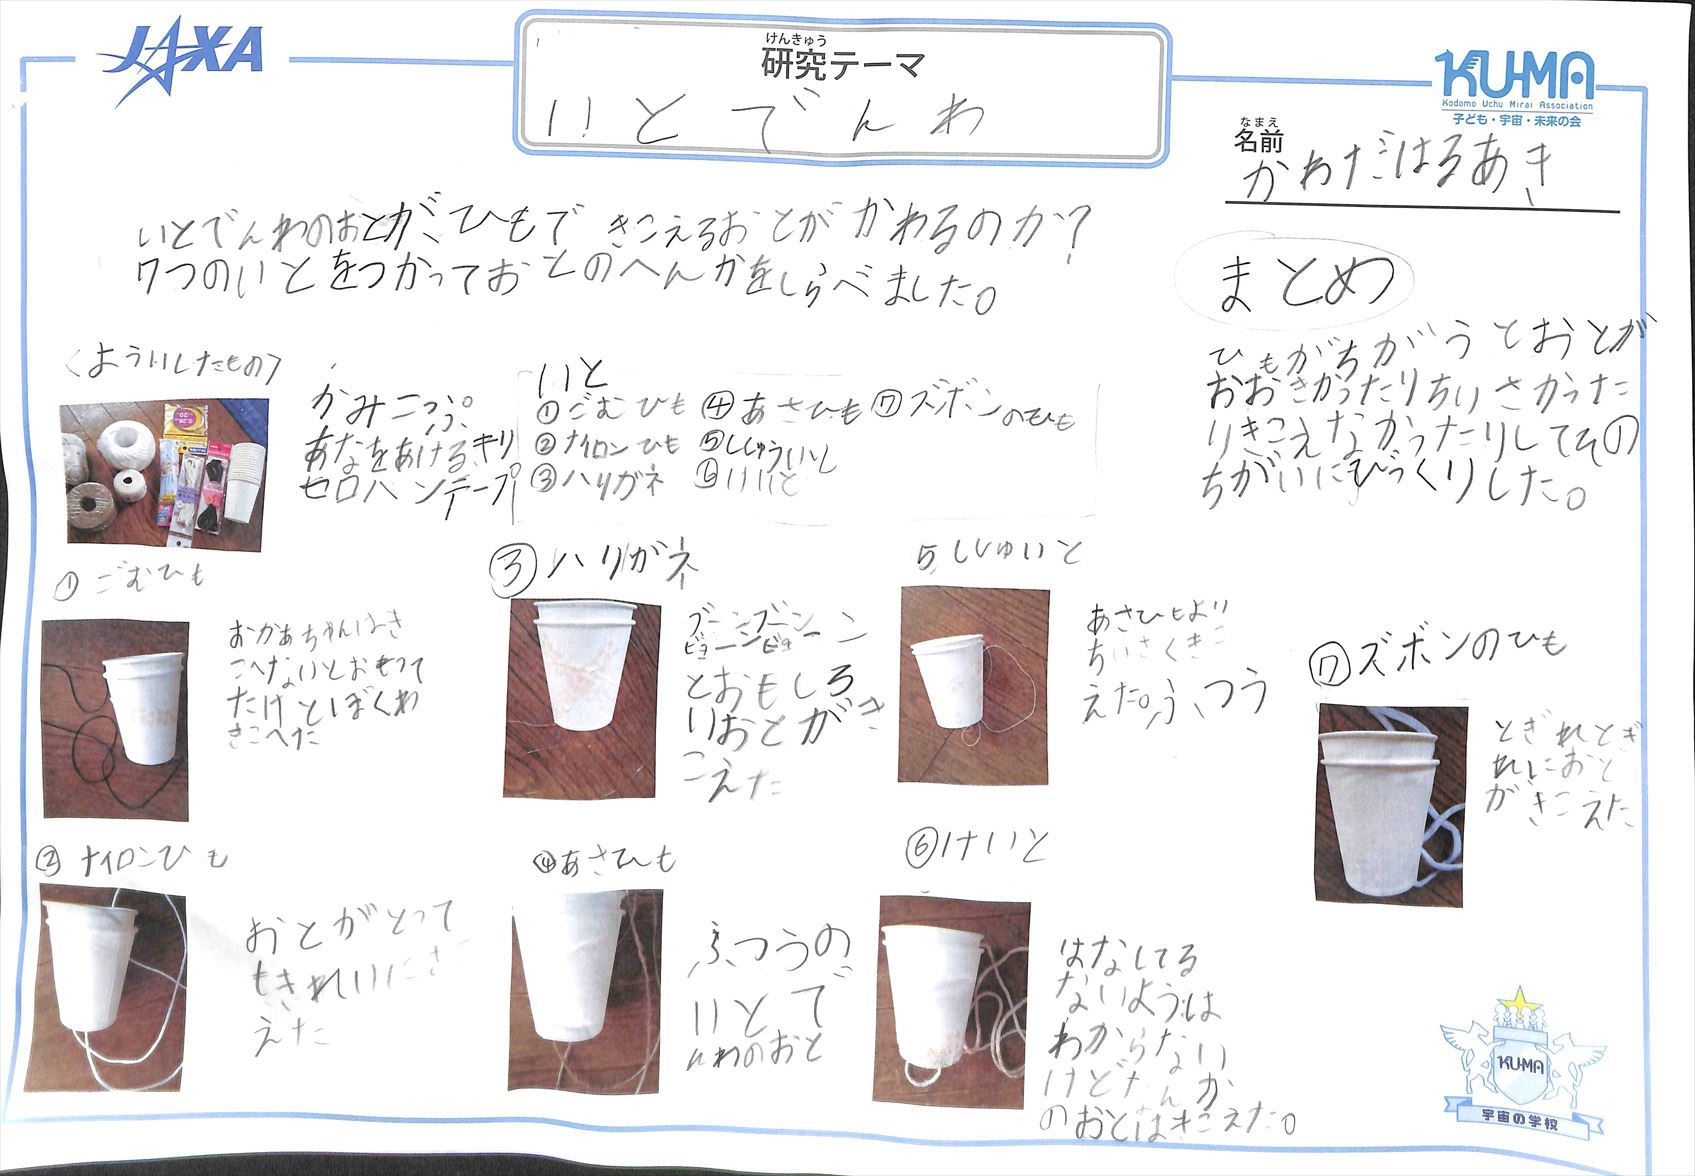 JAXA
けんきゅう
研究テーマ
いとでんわ
KU-MA
Kodomo Uchu Mirai Association
子ども・宇宙・未来の会
なまえ
名前
かわだはるあき
いとでんわのおとが、ひもで きこえるおとが かわるのか?
7つのいとをつかっておとのへんかをしらべました。
〈よういしたもの〉
かみこっぷ
あなをあけるキリ
セロハンテープ
いと
①ごむひも ④あさひも ⑦ズボンのひも
②ナイロンひも ⑤ししゅういし
③ハリガネ ⑥けいと
まとめ
ひもがちがうとおとが
おおきかったりちいさかった
りきこえなかったりしてその
ちがいにびっくりした。
①ごむひも
おかあちゃんはき
こへないとおもって
たけとぼくわ
きこへた
②ナイロンひも
おとがとって
もきれいにきこ
えた
③ハリガネ
ブーンブーン
ビョーンビョーン
とおもしろ
いおとがき
こえた
④あさひも
ふつうの
いとで
んわのおと
5ししゅいと
あさひもより
ちいさくきこ
えた。ふつう
⑥けいと
はなしてる
ないようは
わからない
けどなんか
のおとはきこえた。
⑦ズボンのひも
とぎれとぎ
れにおと
がきこえた
KU-MA
宇宙の学校